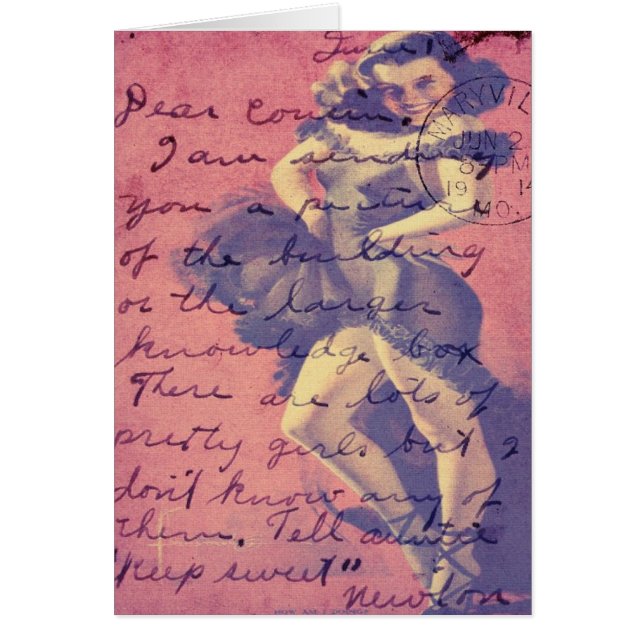 June 1
Dear Cousin,
I am sending
you a picture
of the building
or the larger
knowledge box
There are lots of
pretty girls but I
don't know any of
them. Tell auntie
"keep sweet"
Newton
MARYVIL
JUN 2
8-PM
19 14
MO.